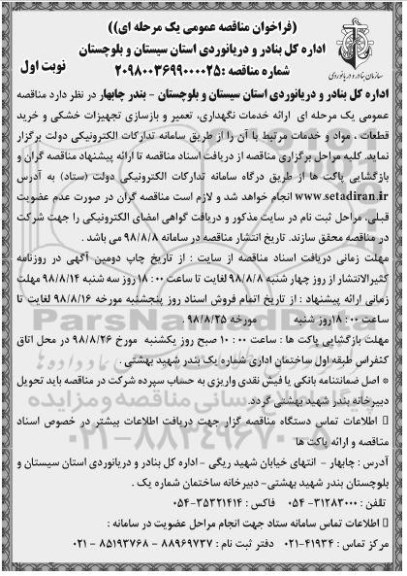 (فراخوان مناقصه عمومی یک مرحله ای))
اداره کل بنادر و دریانوردی استان سیستان و بلوچستان
شماره مناقصه :۲۰۹۸۰۰۳۶۹۹۰۰۰۰۲۵
نوبت اول
سازمان بنادر و دریانوردی
اداره کل بنادر و دریانوردی استان سیستان و بلوچستان - بندر چابهار در نظر دارد مناقصه
عمومی یک مرحله ای ارائه خدمات نگهداری، تعمیر و بازسازی تجهیزات خشکی و خرید
قطعات ، مواد و خدمات مرتبط با آن را از طریق سامانه تدارکات الکترونیکی دولت برگزار
نماید. کلیه مراحل برگزاری مناقصه از دریافت اسناد مناقصه تا ارائه پیشنهاد مناقصه گران و
بازگشایی پاکت ها از طریق درگاه سامانه تدارکات الکترونیکی دولت (ستاد) به آدرس
www.setadiran.ir انجام خواهد شد و لازم است مناقصه گران در صورت عدم عضویت
قبلی، مراحل ثبت نام در سایت مذکور و دریافت گواهی امضای الکترونیکی را جهت شرکت
در مناقصه محقق سازند. تاریخ انتشار مناقصه در سامانه ۹۸/۸/۸ می باشد .
مهلت زمانی دریافت اسناد مناقصه از سایت : از تاریخ چاپ دومین آگهی در روزنامه
کثیرالانتشار از روز چهار شنبه ۹۸/۸/۸ لغایت تا ساعت ۱۸:۰۰ روز سه شنبه ۹۸/۸/۱۴ مهلت
زمانی ارائه پیشنهاد : از تاریخ اتمام فروش اسناد روز پنجشنبه مورخه ۹۸/۸/۱۶ لغایت تا
ساعت ۱۸:۰۰روز شنبه مورخه ۹۸/۸/۲۵ .
مهلت بازگشایی پاکت ها : ساعت ۱۰:۰۰ صبح روز یکشنبه مورخ ۹۸/۸/۲۶ در محل اتاق
کنفراس طبقه اول ساختمان اداری شماره یک بندر شهید بهشتی .
* اصل ضمانتنامه بانکی یا فیش نقدی واریزی به حساب سپرده شرکت در مناقصه باید تحویل
دبیرخانه بندر شهید بهشتی گردد.
▯ اطلاعات تماس دستگاه مناقصه گزار جهت دریافت اطلاعات بیشتر در خصوص اسناد
مناقصه و ارائه پاکت ها
آدرس : چابهار - انتهای خیابان شهید ریگی -اداره کل بنادر و دریانوردی استان سیستان و
بلوچستان بندر شهید بهشتی- دبیرخانه ساختمان شماره یک .
تلفن : ۳۱۲۸۳۰۰۰- ۰۵۴ فاکس : ۳۵۳۲۱۴۱۴-۰۵۴
▯ اطلاعات تماس سامانه ستاد جهت انجام مراحل عضویت در سامانه :
مرکز تماس : ۴۱۹۳۴-۰۲۱ دفتر ثبت نام : ۸۸۹۶۹۷۳۷ - ۸۵۱۹۳۷۶۸ - ۰۲۱
ParsNamadData
۰۲۱-۸۸۳۴۹۶۷۰-۵